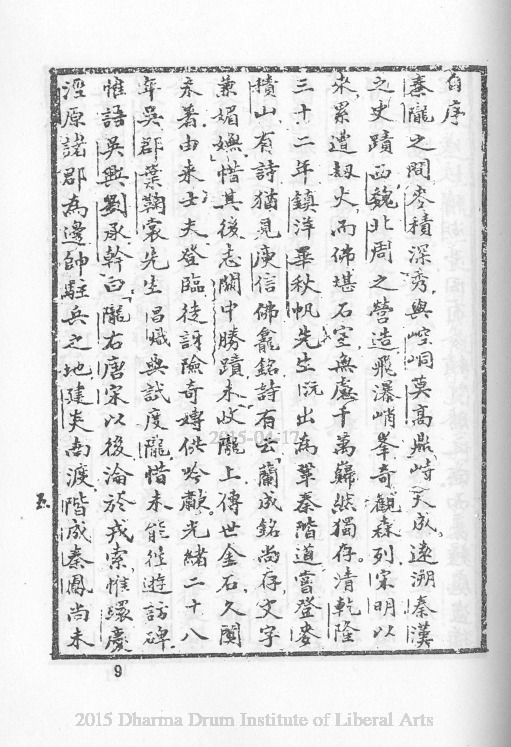 自序
秦隴之間麥積深秀與崆峒莫高鼎峙天成遠溯秦漢
之史蹟西魏北周之營造飛瀑峭峯奇觀森列宋明以
來累遭劫火而佛堪石室無慮千萬巋然獨存清乾隆
三十二年鎮洋畢秋帆先生沅出為鞏秦階道嘗登麥
積山有詩猶見庾信佛龕銘詩有云蘭成銘尚存文字
兼媚嫵惜其後志關中勝蹟未收隴上傳世金石久閟
未著由來士夫登臨徒訝險奇專供吟歗光緒二十八
年吳郡葉鞠裳先生昌熾典試度隴惜未能從遊訪碑
惟語吳興劉承幹曰隴右唐宋以後淪於戎索惟環慶
涇原諸郡為邊帥駐兵之地建炎南渡階成秦鳳尚未
五
9
2015-04-17
2015 Dharma Drum Institute of Liberal Arts